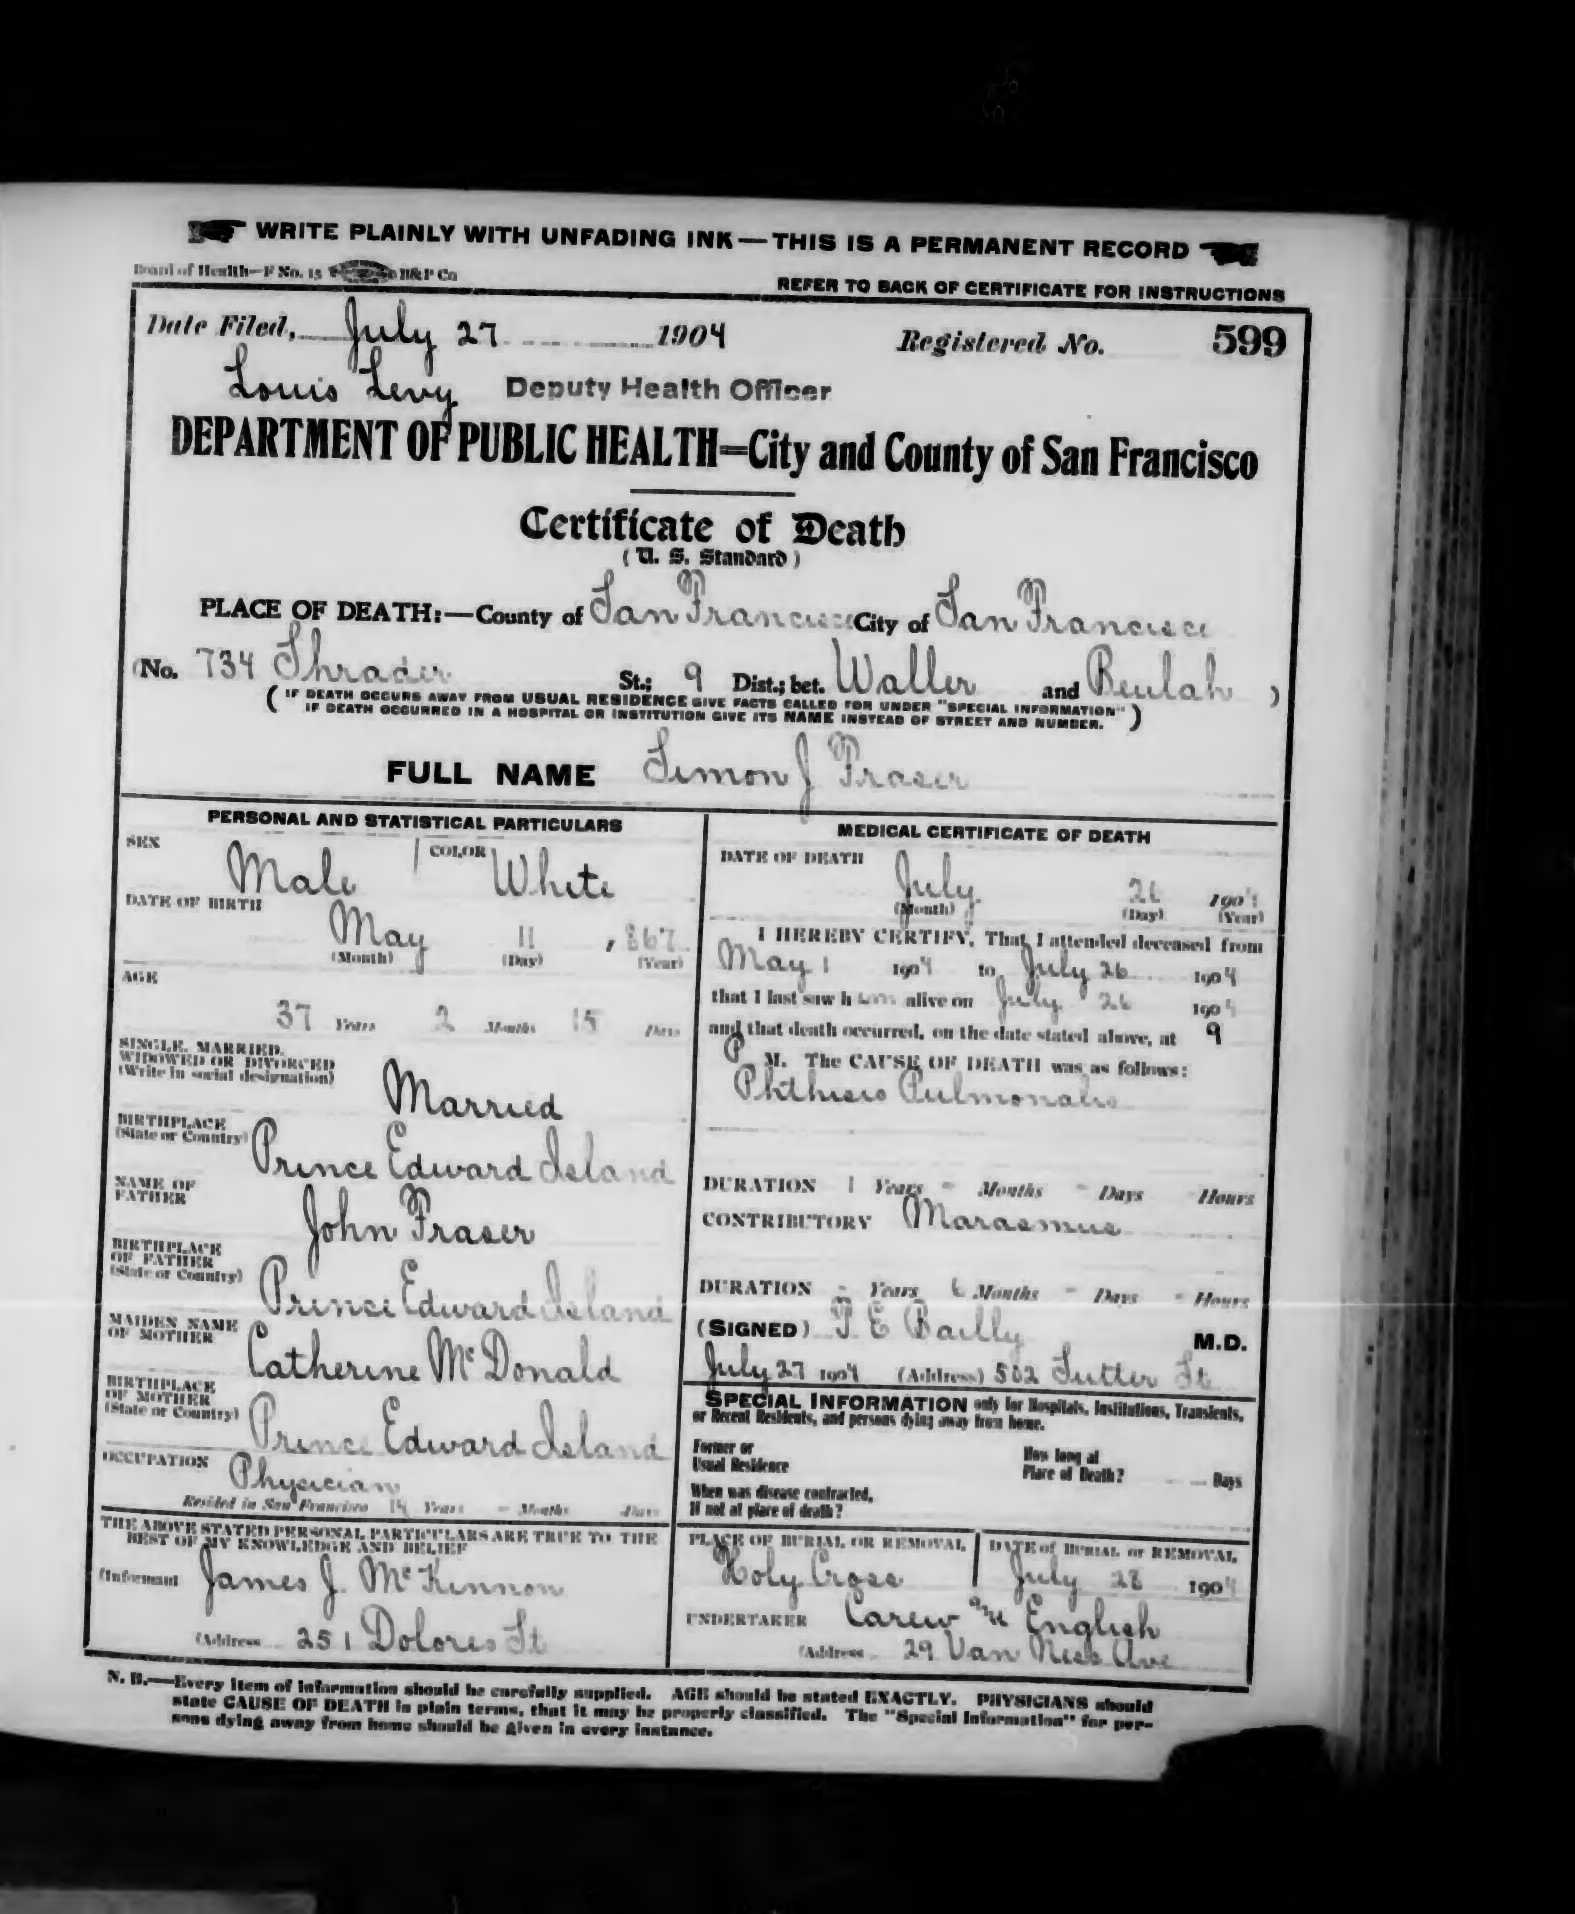 WRITE PLAINLY WITH UNFADING INK — THIS IS A PERMANENT RECORD
Board of Health—F No. 15 H&P Co
REFER TO BACK OF CERTIFICATE FOR INSTRUCTIONS
Date Filed, July 27 1904 Registered No. 599
Louis Levy Deputy Health Officer
DEPARTMENT OF PUBLIC HEALTH=City and County of San Francisco
Certificate of Death
(U. S. Standard)
PLACE OF DEATH:—County of San Francisco City of San Francisco
(No. 734 Shrader St.; 9 Dist.; bet. Waller and Beulah )
( IF DEATH OCCURS AWAY FROM USUAL RESIDENCE GIVE FACTS CALLED FOR UNDER "SPECIAL INFORMATION"
IF DEATH OCCURRED IN A HOSPITAL OR INSTITUTION GIVE ITS NAME INSTEAD OF STREET AND NUMBER. )
FULL NAME Simon J Fraser
PERSONAL AND STATISTICAL PARTICULARS
SEX Male COLOR White
DATE OF BIRTH
May 11 , 867
(Month) (Day) (Year)
AGE
37 Years 2 Months 15 Days
SINGLE, MARRIED,
WIDOWED OR DIVORCED
(Write in social designation) Married
BIRTHPLACE
(State or Country) Prince Edward Island
NAME OF
FATHER John Fraser
BIRTHPLACE
OF FATHER
(State or Country) Prince Edward Island
MAIDEN NAME
OF MOTHER Catherine McDonald
BIRTHPLACE
OF MOTHER
(State or Country) Prince Edward Island
OCCUPATION Physician
Resided in San Francisco Years - Months Days
THE ABOVE STATED PERSONAL PARTICULARS ARE TRUE TO THE
BEST OF MY KNOWLEDGE AND BELIEF
(Informant James J. McKinnon
(Address 251 Dolores St
MEDICAL CERTIFICATE OF DEATH
DATE OF DEATH
July 26 1904
(Month) (Day) (Year)
I HEREBY CERTIFY, That I attended deceased from
May 1 1904 to July 26 1904
that I last saw h im alive on July 26 1904
and that death occurred, on the date stated above, at 9
P M. The CAUSE OF DEATH was as follows:
Phthisis Pulmonalis
DURATION 1 Years - Months - Days Hours
CONTRIBUTORY Marasmus
DURATION - Years 6 Months - Days - Hours
(SIGNED) P E Bailly M.D.
July 27 1904 (Address) 502 Sutter St
SPECIAL INFORMATION only for Hospitals, Institutions, Transients,
or Recent Residents, and persons dying away from home.
Former or
Usual Residence
How long at
Place of Death? Days
When was disease contracted,
If not at place of death?
PLACE OF BURIAL OR REMOVAL
Holy Cross
DATE of BURIAL or REMOVAL
July 28 1904
UNDERTAKER Carew and English
(Address 29 Van Ness Ave
N. B.—Every item of information should be carefully supplied. AGE should be stated EXACTLY. PHYSICIANS should
state CAUSE OF DEATH in plain terms, that it may be properly classified. The "Special Information" for per-
sons dying away from home should be given in every instance.